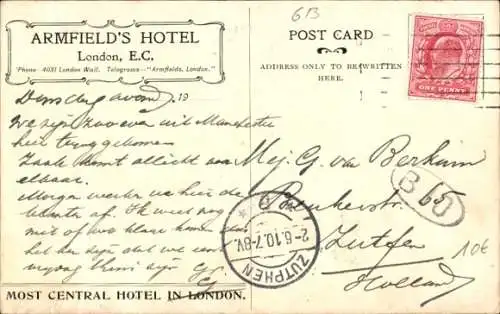 ARMFIELD'S HOTEL
London, E.C.
'Phone 4031 London Wall. Telegrams—"Armfields, London."
Dinsdag avond 19
We zijn zooeven uit Manchester
hier terug gekomen
Zaak komt allicht voor
elkaar.
Morgen werken we hier de
af. Ik weet nog
niet of we klaar komen
het zijn dat we
zijn
MOST CENTRAL HOTEL IN LONDON.
6B
POST CARD
ADDRESS ONLY TO BE WRITTEN
HERE.
ONE PENNY
Mej. G. van Berkum
65
Zutfen
Holland
B
10€
ZUTPHEN
2-6.10.7-8V.